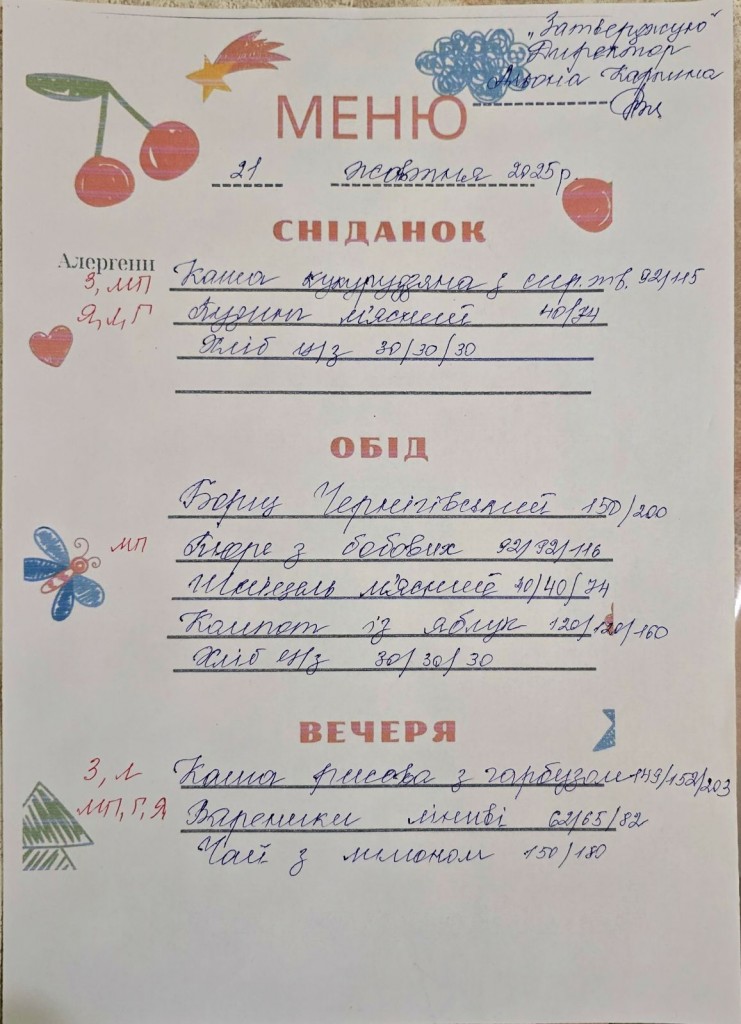 „Затверджую"
Директор
Альона Карпина
МЕНЮ
21 жовтня 2025р.
СНІДАНОК
Алергени
З, МП Каша кукурудзяна з сир.тв. 92/115
Я, Л, Г Пудинг м'ясний 40/74
Хліб ц/з 30/30/30
ОБІД
Борщ Чернігівський 150/200
МП Пюре з бобових 92/92/116
Шніцель м'ясний 40/40/74
Компот із яблук 120/120/160
Хліб ц/з 30/30/30
ВЕЧЕРЯ
З, Л Каша рисова з гарбузом 149/152/203
МП, Г, Я Вареники ліниві 62/65/82
Чай з лимоном 150/180